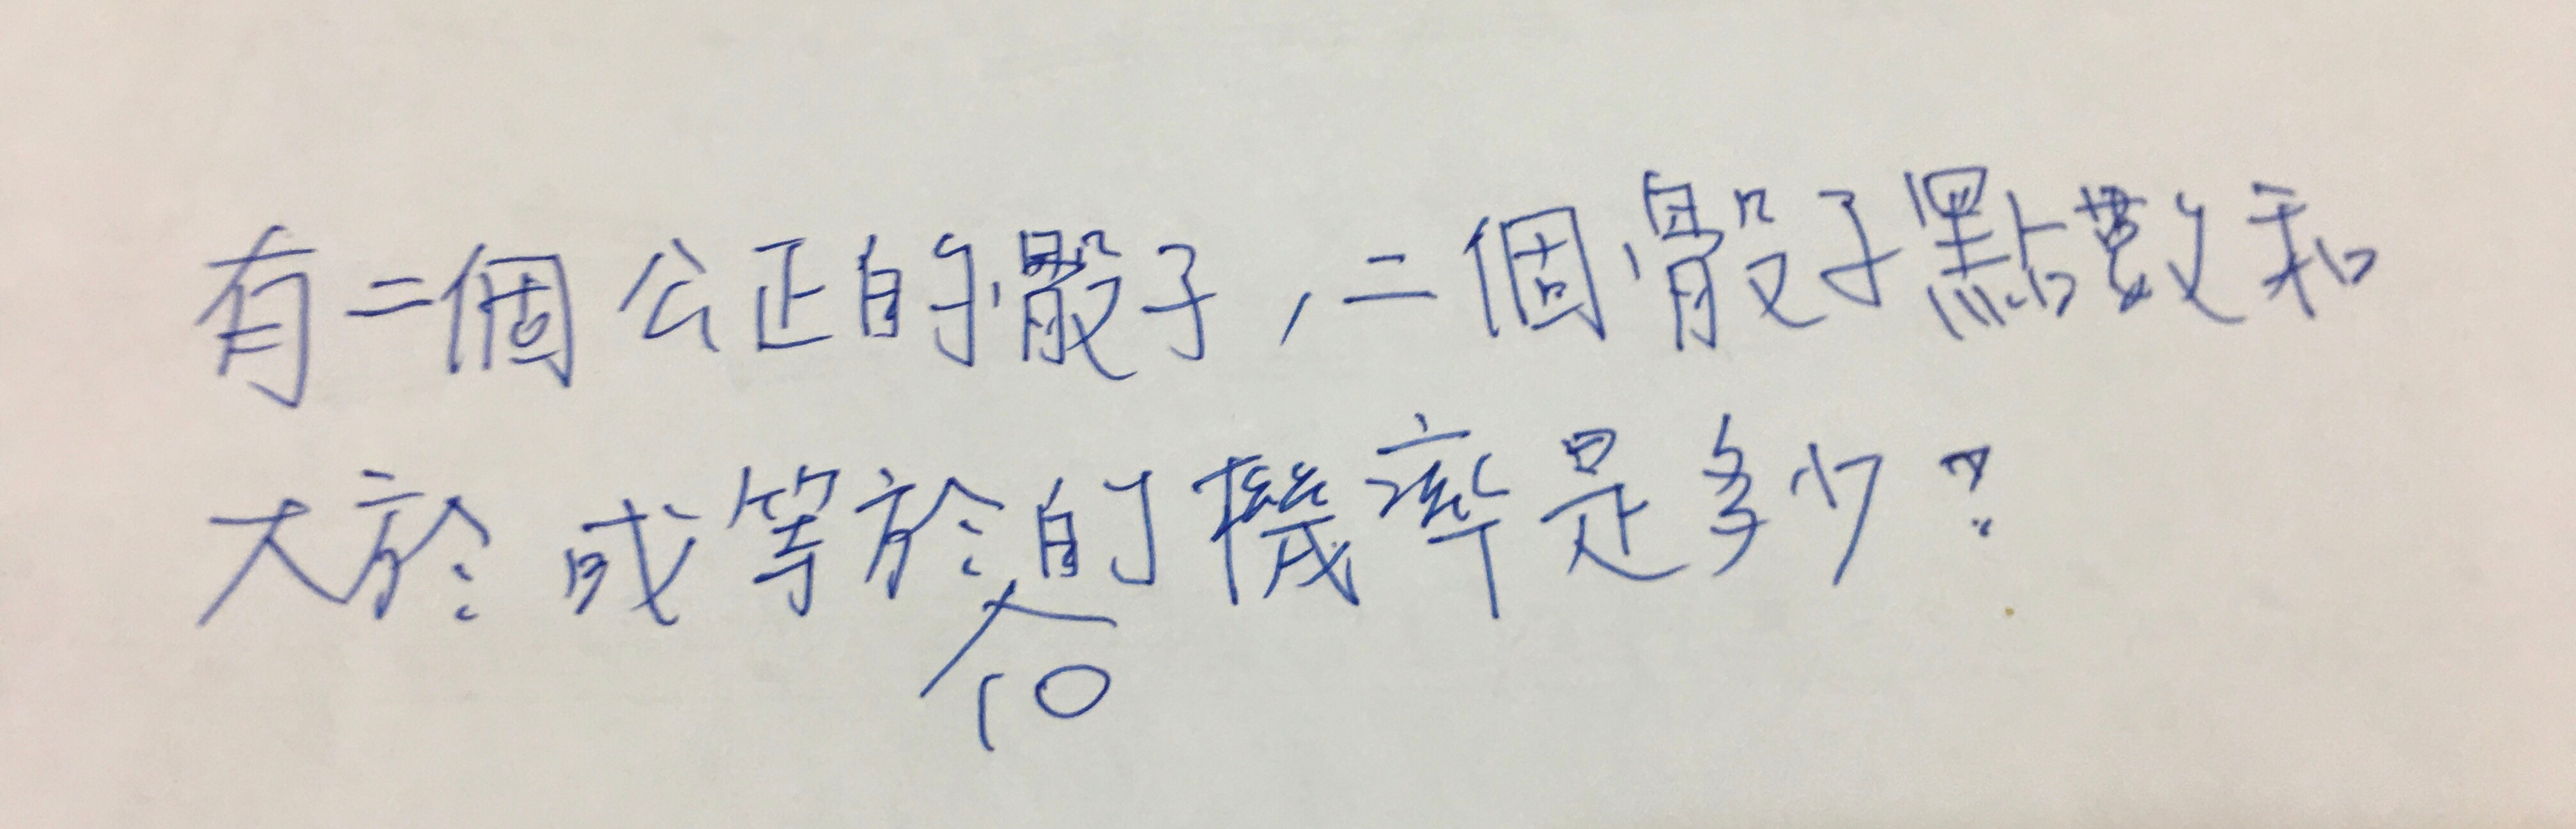 有二個公正的骰子,二個骰子點數和
大於或等於10的機率是多少?